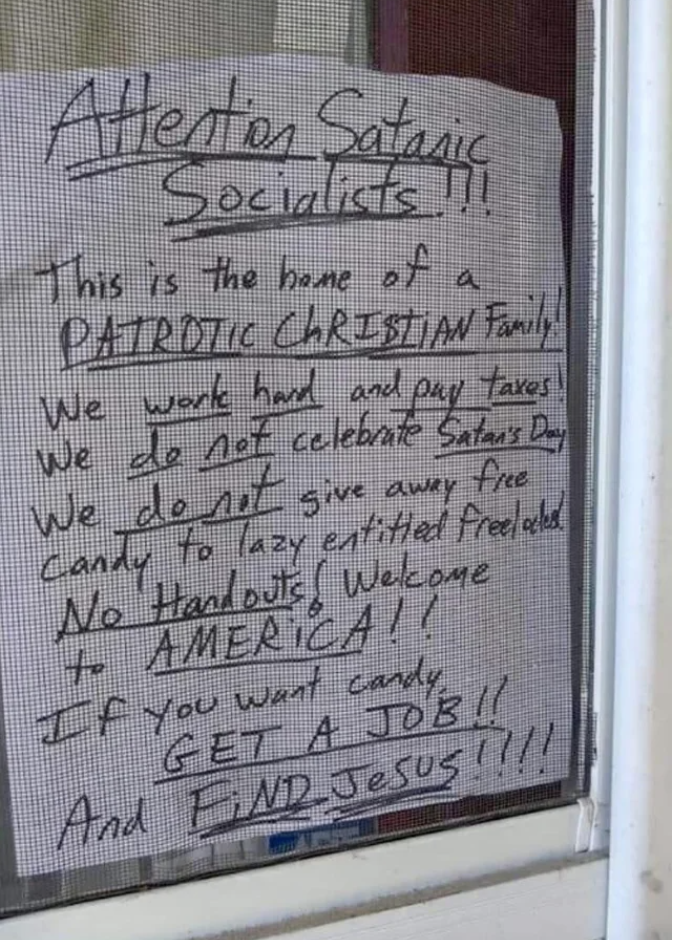 Attention Satanic
Socialists!!!
This is the home of a
PATROTIC ChRISTIAN Family!
We work hard and pay taxes!
We do not celebrate Satan's Day
We do not give away free
candy to lazy entitled
No Handouts! Welcome
to AMERiCA!!
If you want candy
GET A JOB!!
And FiND JeSUS!!!!